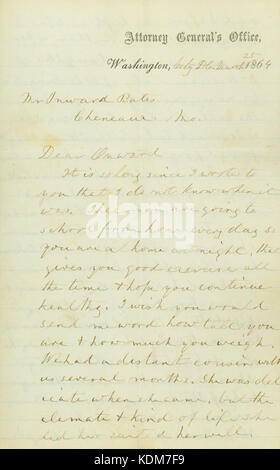 Attorney General's Office,
Washington, March 25 1864
Mr Onward Bates
Cheneaux, Mo.
Dear Onward
It is so long since I wrote to
you that I do not know when it
was. I see you are going to
school from home every day so
you are a home at night, tha
gives you good exercise all
the time & hope you continue
healthy. I wish you would
send me word how tall you
are & how much you weigh.
We had a distant cousin with
us several months. She was del
icate when she came, but the
climate & kind of life she
led here suited her well.
alamy
Image ID: KDM7F9
www.alamy.com